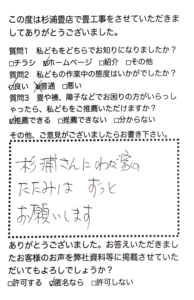 この度は杉浦畳店で畳工事をさせていただきま
してありがとうございました。
質問1　私どもをどちらでお知りになりましたか？
□チラシ　☑ホームページ　□紹介　□その他
質問2　私どもの作業中の態度はいかがでしたか？
☑良い　☑普通　□悪い
質問3　畳や襖、障子などでお困りの方がいらっし
ゃったら、私どもをご推薦いただけますか？
☑推薦できる　□推薦できない　□分からない
その他、ご意見がございましたらお書き下さい。
杉浦さんにわが家の
たたみは ずっと
お願いします
ありがとうございました。お答えいただきまし
たお客様のお声を弊社資料等に掲載させていた
だいてもよろしでしょうか？
□許可する　☑匿名なら　□許可しない